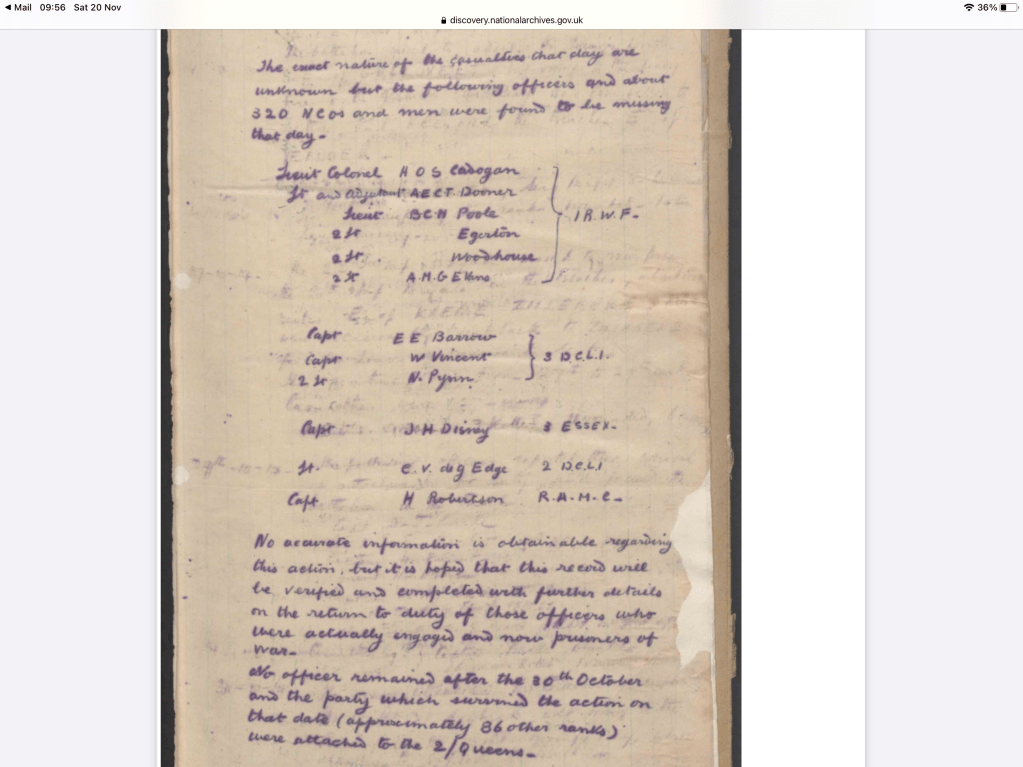 Mail 09:56 Sat 20 Nov 36%
discovery.nationalarchives.gov.uk
The exact nature of the casualties that day are
unknown but the following officers and about
320 NCOs and men were found to be missing
that day -
Lieut Colonel H O S Cadogan
Lt and Adjutant A E C T Dooner
Lieut B C H Poole 1 R.W.F.
2 Lt Egerton
2 Lt Woodhouse
2 Lt A.M.G Evans
Capt E E Barrow
Capt W Vincent 3 D.C.L.I.
2 Lt N. Pynn
Capt J H Disney 3 ESSEX -
Lt. C. V. deg Edge 2 D.C.L.I
Capt H Robertson R.A.M.C -
No accurate information is obtainable regarding
this action, but it is hoped that this record will
be verified and completed with further details
on the return to duty of those officers who
were actually engaged and now prisoners of
war -
No officer remained after the 30th October
and the party which survived the action on
that date (approximately 86 other ranks)
were attached to the 2/Queens -